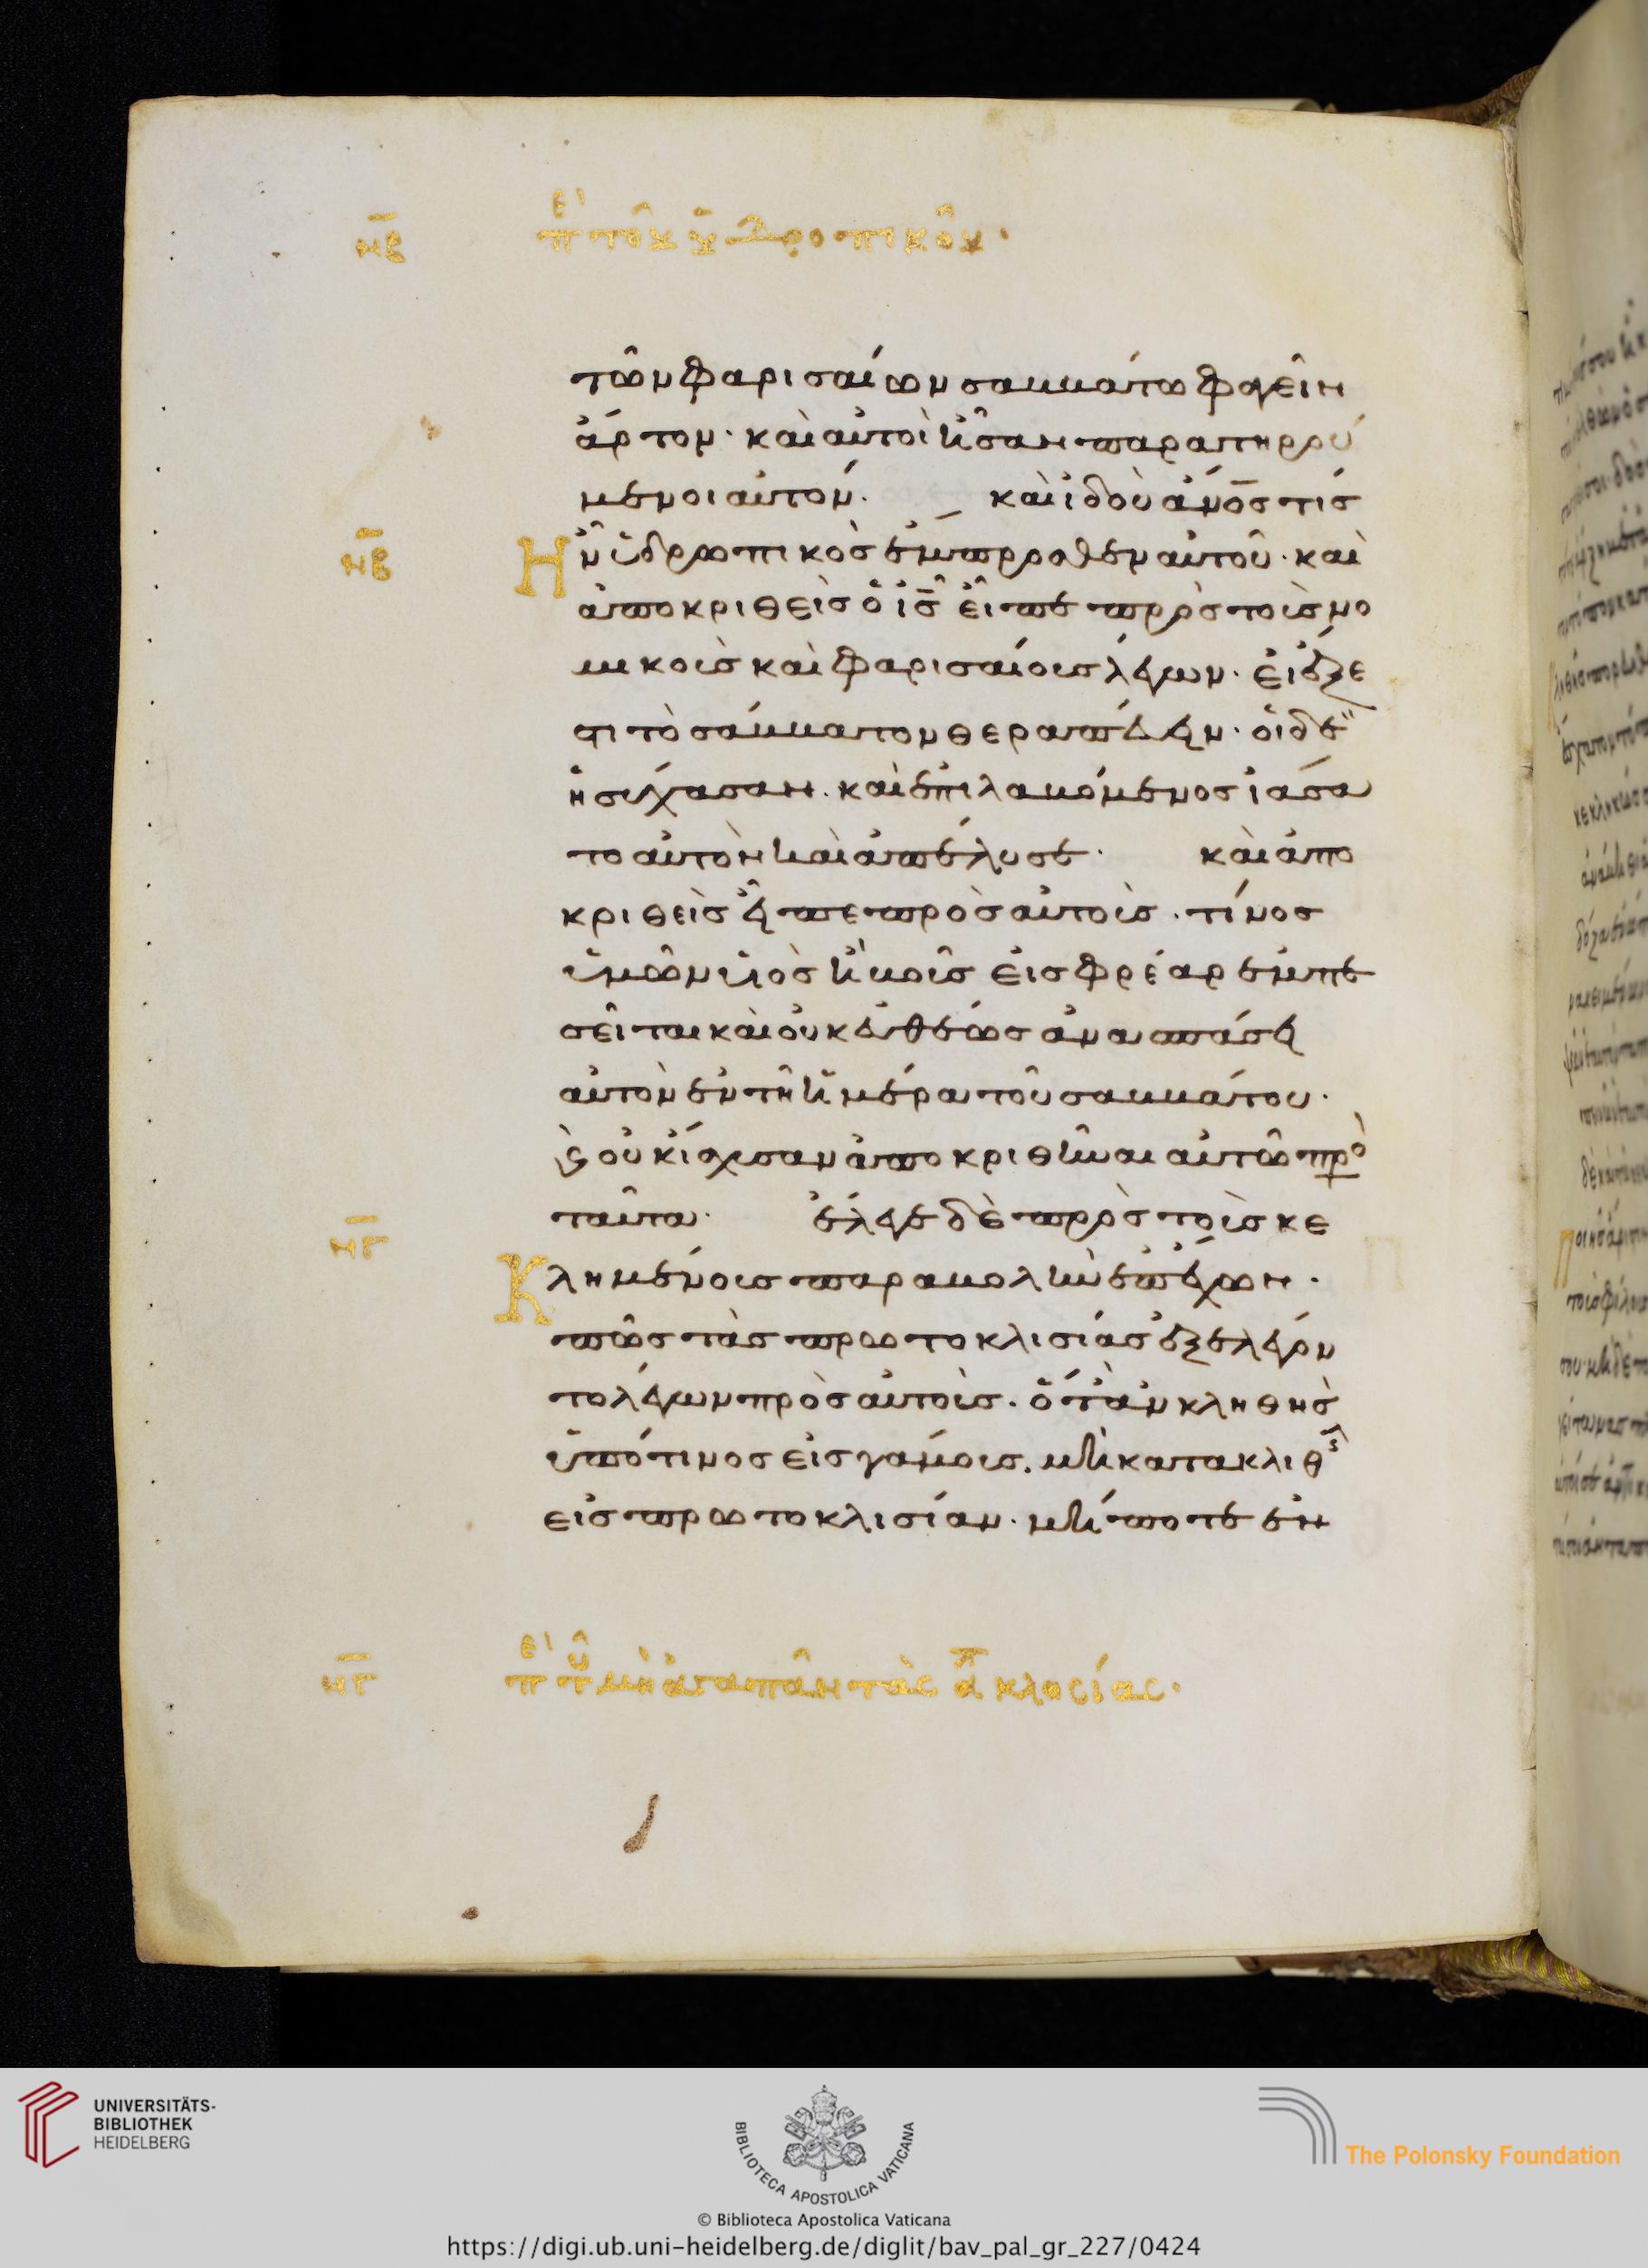 ν̅β̅ πὲ τοῦ ὑδροπικοῦ·
τῶν φαρισαίων σαββάτω φαγεῖν
ἄρτον· καὶ αὐτοὶ ἦσαν παρατηρού
μενοι αὐτόν. καὶ ἰδοὺ ἄν̅ο̅ς̅ τίς
ν̅β̅ Ἦν ὑδρωπικὸς ἔμπροσθεν αὐτοῦ· καὶ
ἀποκριθεὶς ὁ ι̅ς̅ εἶπε πρὸς τοὺς νο
μικοὺς καὶ φαρισαίους λέγων· εἰ ἔξε
στι τὸ σάββατον θεραπεύειν· οἱ δὲ
ἡσύχασαν. καὶ ἐπιλαβόμενος ἰάσα
το αὐτὸν καὶ ἀπέλυσε· καὶ ἀπο
κριθεὶς εἶπε πρὸς αὐτούς· τίνος
ὑμῶν υἱὸς ἢ βοῦς εἰς φρέαρ ἐμπε
σεῖται καὶ οὐκ εὐθέως ἀνασπάσει
αὐτὸν ἐν τῆ ἡμέρα τοῦ σαββάτου·
ϗ̀ οὐκ ἴσχυσαν ἀποκριθῆναι αὐτῶ προ
ταῦτα· ἔλεγε δὲ πρὸς τοὺς κε
ν̅γ̅ Κλημένους παραβολὴν ἐπέχων·
πῶς τὰς πρωτοκλισίας ἐξελέγον
το λέγων πρὸς αὐτούς· ὅταν κληθῆς
ὑπό τινος εἰς γάμους. μὴ κατακλιθῆς
εἰς πρωτοκλισίαν· μήποτε ἐν
ν̅γ̅ πὲ τοῦ μὴ ἀγαπᾶν τὰς ἀ κλησίας·
UNIVERSITÄTS-
BIBLIOTHEK
HEIDELBERG
BIBLIOTECA APOSTOLICA VATICANA
The Polonsky Foundation
© Biblioteca Apostolica Vaticana
https://digi.ub.uni-heidelberg.de/diglit/bav_pal_gr_227/0424